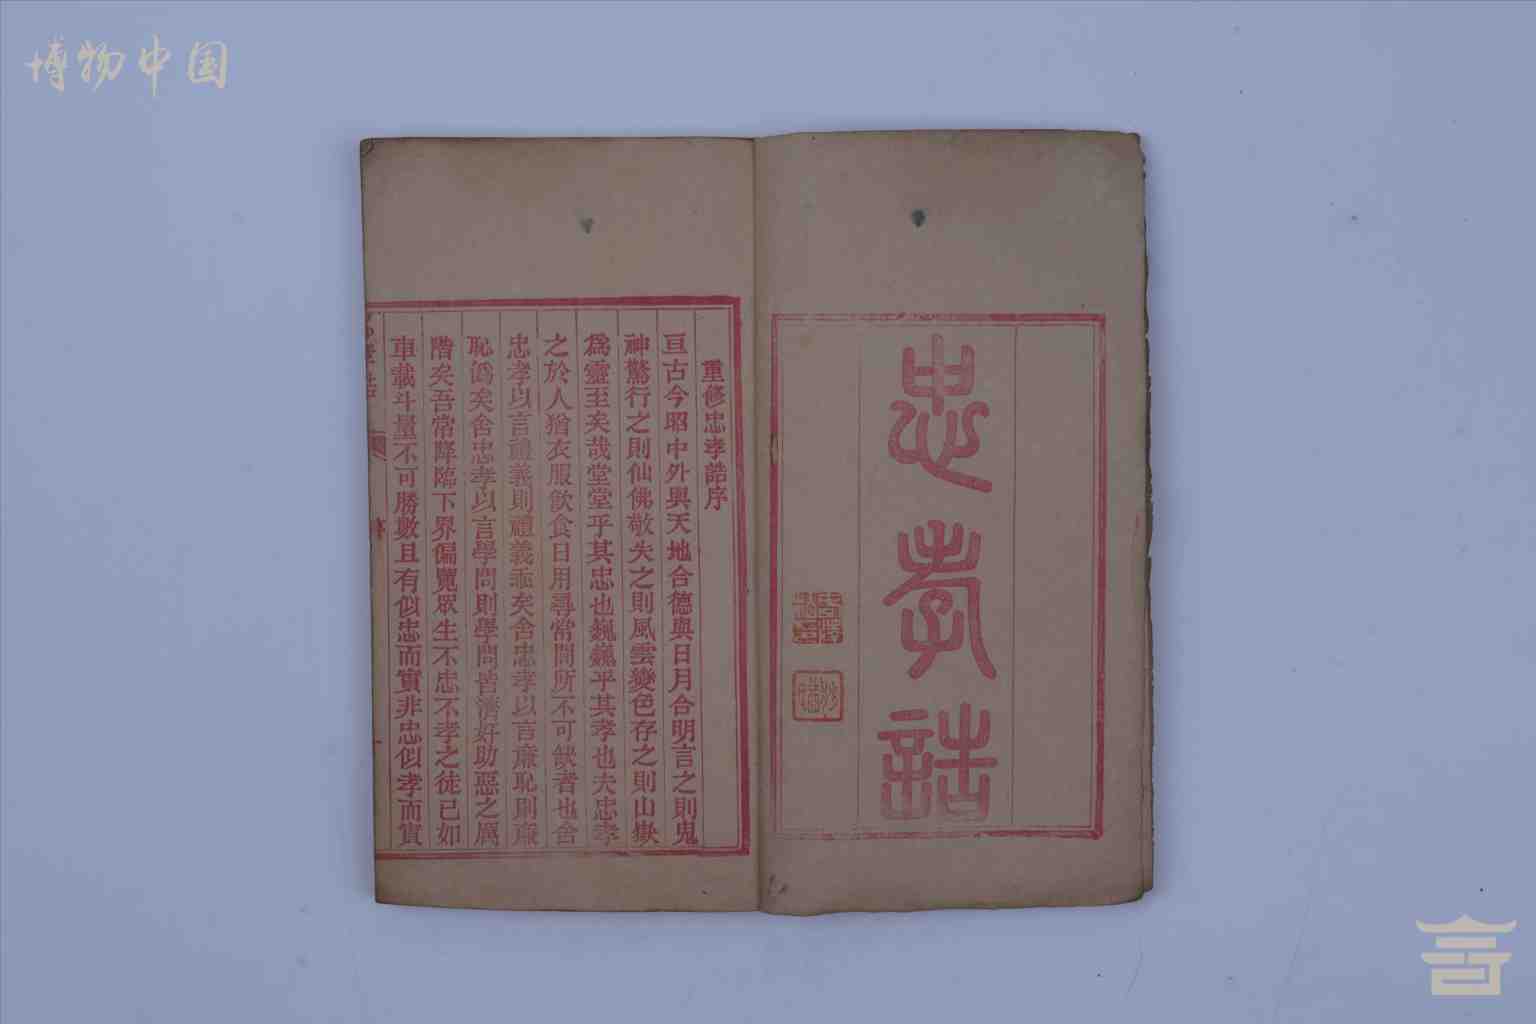 博物中国
忠孝誥
重修忠孝誥序
亘古今昭中外與天地合德與日月合明言之則鬼
神驚行之則仙佛敬失之則風雲變色存之則山嶽
爲靈至矣哉堂堂乎其忠也巍巍乎其孝也夫忠孝
之於人猶衣服飲食日用尋常間所不可缺者也舍
忠孝以言禮義則禮義乖矣舍忠孝以言廉恥則廉
恥僞矣舍忠孝以言學問則學問皆濟奸助惡之厲
階矣吾常降臨下界徧覽眾生不忠不孝之徒已如
車載斗量不可勝數且有似忠而實非忠似孝而實